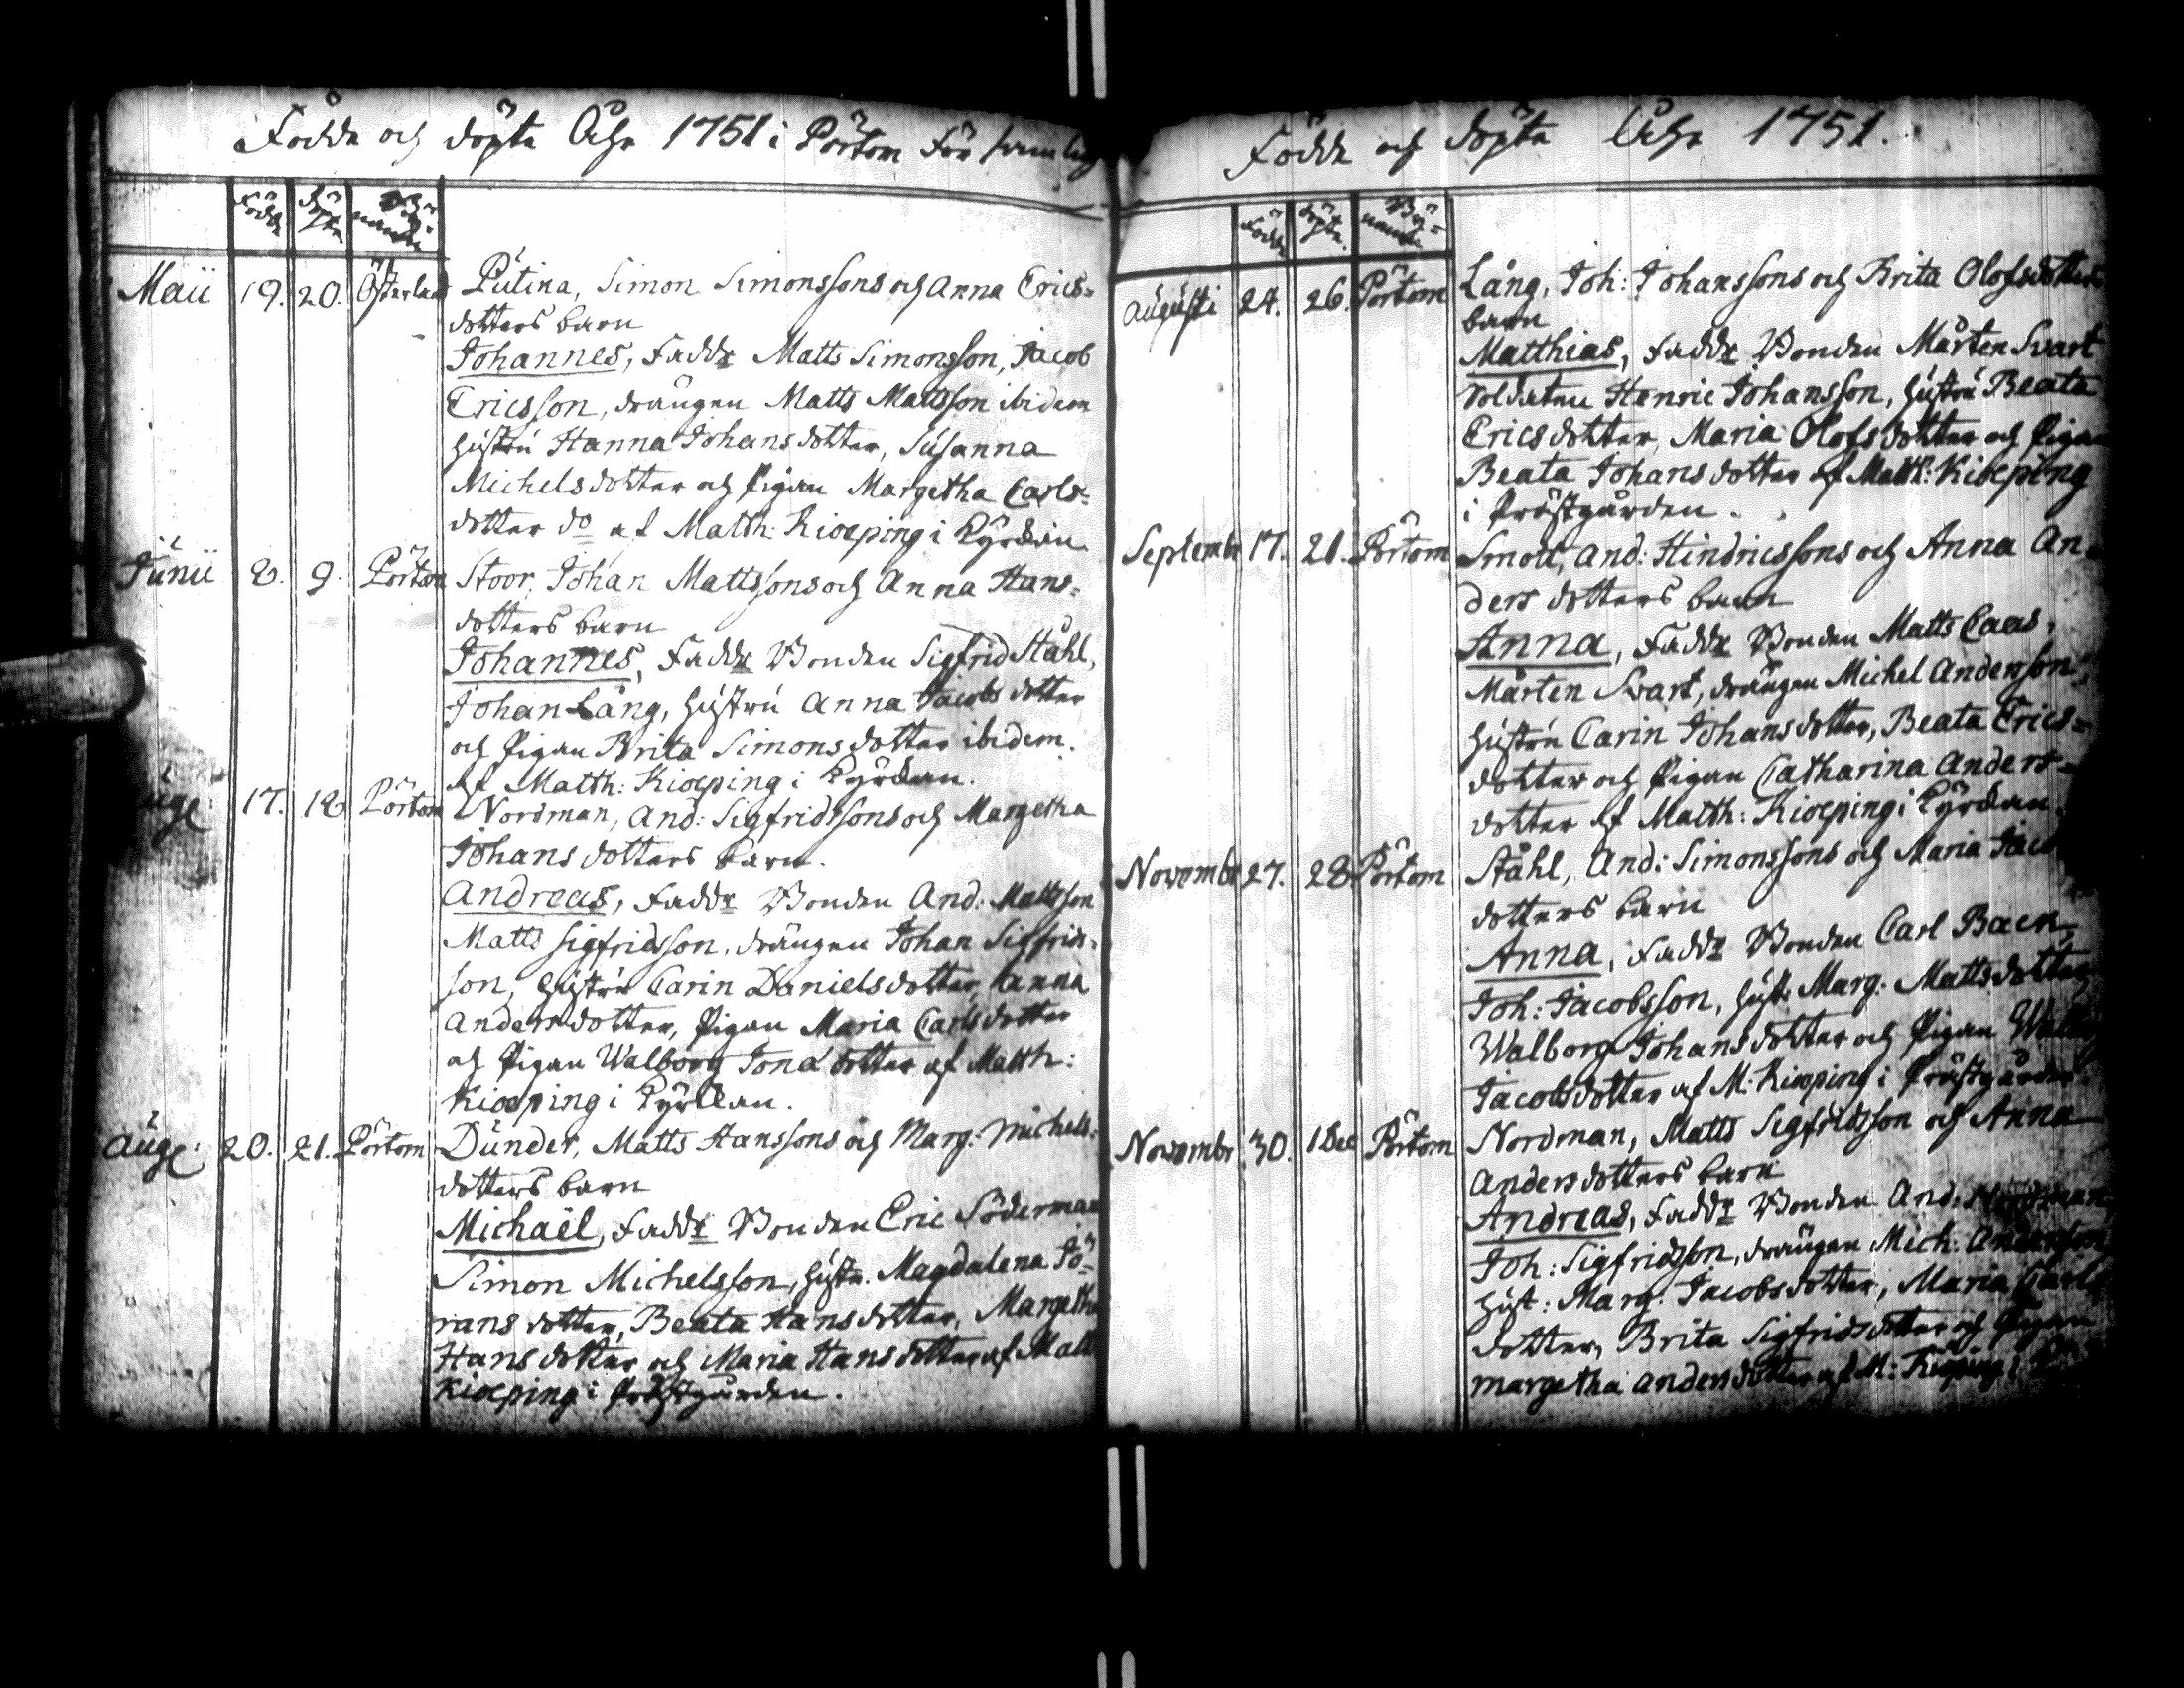 Födde och döpte Åhr 1751 i Pörtom För samling
Födde
döpte
Bÿ-
namnen
Maii 19. 20. Österland Pütina, Simon Simonssons och Anna Erics=
dotters barn
Johannes, Faddr Matts Simonsson, Jacob
Ericsson, drängen Matts Mattsson ibidem
Hüstrü Hanna Johansdotter, Süsanna
Michelsdotter och Pigan Margetha Carls=
dotter do af Matth: Kioeping i Kÿrckan
Jünii 8. 9. Pörtom Stoor, Johan Mattssons och Anna Hans=
dotters barn
Johannes, Faddr Bonden Sigfrid Ståhl,
Johan Lång, Hüstrü Anna Jacobsdotter
och Pigan Brita Simonsdotter ibidem.
Af Matth: Kioeping i Kÿrckan.
17. 18 Pörtom Nordman, And: Sigfridssons och Margetha
Johansdotters barn.
Andreas, Faddr Bonden And: Mattsson
Matts Sigfridsson, drängen Johan Sigfrids=
son, Hüstrü Carin Danielsdotter, Anna
Andersdotter, Pigan Maria Carlsdotter
och Pigan Walborg Jonsdotter af Matth:
Kioeping i Kÿrckan.
Aüg: 20. 21. Pörtom Dünder, Matts Hanssons och Marg: Michels=
dotters barn
Michaël, Faddr Bonden Eric Söderman
Simon Michelsson, Hüstr. Magdalena Jö=
rans dotter, Beata Hansdotter, Margetha
Hans dotter och Maria Hansdotter af Matt
Kioeping i Prästgården.
Födde och döpte Åhr 1751.
Födde
döpte.
Bÿ=
namnen
Augüsti 24. 26. Pörtom Lång, Joh: Johanssons och Brita Olofsdotters
barn
Matthias, Faddr Bonden Mårten Svart
Soldaten Henric Johansson, Hüstrü Beata
Ericsdotter, Maria Olofsdotter och Pigan
Beata Johansdotter af Matth: Kioeping
i Prästgården.
Septembr 17. 21. Pörtom And: Hindricssons och Anna An=
ders dotters barn
Anna, Faddr Bonden Matts Caas,
Mårten Svart, drängen Michel Andersson,
Hüstrü Carin Johansdotter, Beata Erics=
dotter och Pigan Catharina Anders=
dotter af Matth: Kioeping i Kÿrckan.
Novembr 27. 28 Pörtom Ståhl, And: Simonssons och Maria Jacobs
dotters barn
Anna, Faddr Bonden Carl Back,
Joh: Jacobsson, Hüst: Marg: Mattsdotter,
Walborg Johansdotter och Pigan
Jacobsdotter af M: Kioeping i Prästgården.
Novembr 30. 1 Dec Pörtom Nordman, Matts Sigfridsson och Anna
Andersdotters barn
Andreas, Faddr Bonden And: Nordman
Joh: Sigfridsson, drängen Mich: Andersson
Hüst: Marg: Jacobsdotter, Maria Carls
dotter, Brita Sigfridsdotter och Pigan
Margetha Andersdotter af M: Kioeping i